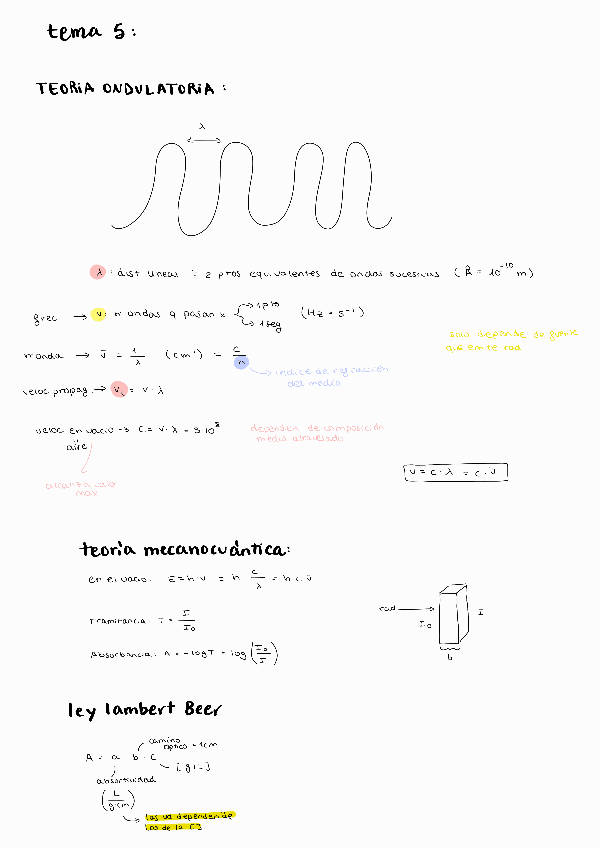 tema 5:
TEORÍA ONDULATORIA:
λ
λ: dist lineal 2 ptos equivalentes de ondas sucesivas (Å = 10⁻¹⁰ m)
frec → ν: nº ondas q pasan x → 1 pto → 1 seg (Hz = s⁻¹)
solo depende de fuente
que emite rad
nº onda → ν̄ = 1/λ (cm⁻¹) = c/n
índice de refracción
del medio
veloc propag. → vᵢ = ν · λ
veloc en vacío → c = ν · λ = 3 · 10⁸
aire
dependen de composición
medio atravesado
alcanza valor
max
ν = c · λ = c · ν̄
teoría mecanocuántica:
en el vacío: E = h · ν = h c/λ = h c ν̄
Tramitancia: T = I/I₀
Absorbancia: A = -log T = log (I₀/I)
rad
I₀
I
b
ley lambert Beer
camino
óptico = 1cm
A = a b · C
[g/L]
absortividad
(L/g·cm)
las ud dependen de
las de la [ ]